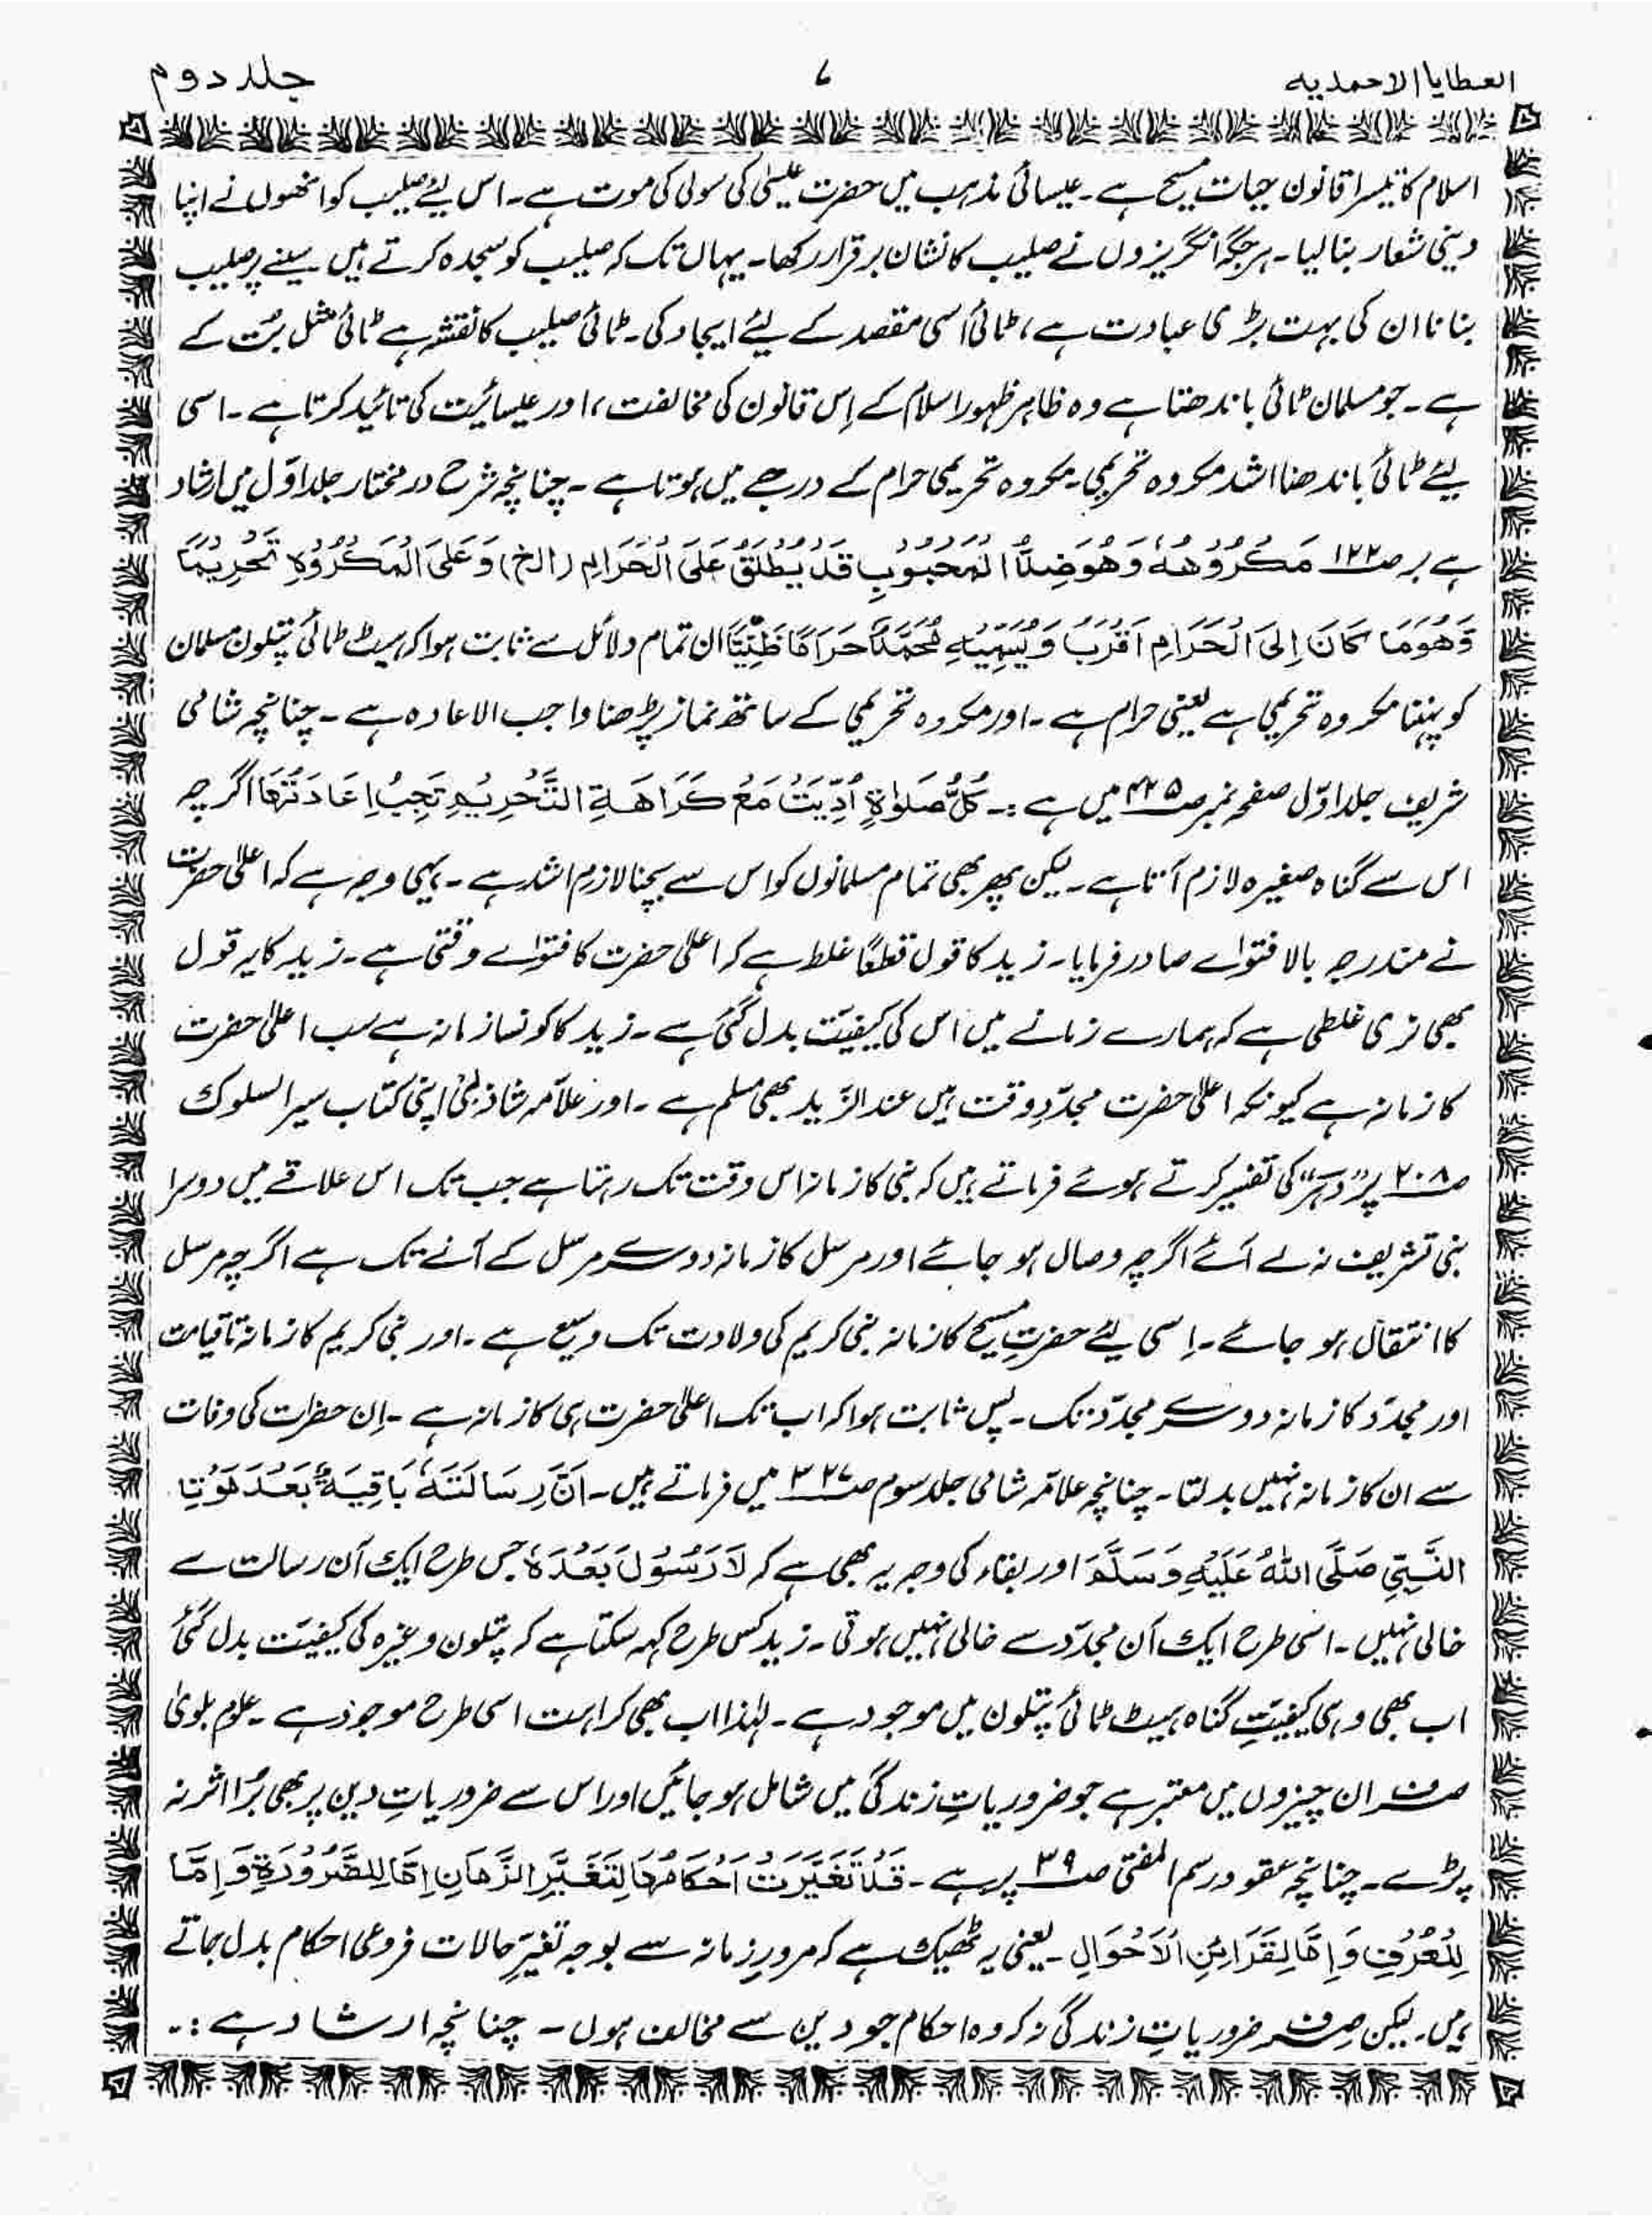 العطایا الاحمدیه ۷ جلد دوم
اسلام کا تیسرا قانون حیات مسیح ہے۔ عیسائی مذہب میں حضرت عیسٰی کی سولی کی موت ہے۔ اس لیئے صلیب کو انھوں نے اپنا
دینی شعار بنا لیا۔ ہر جگہ انگریزوں نے صلیب کا نشان برقرار رکھا۔ یہاں تک کہ صلیب کو سجدہ کرتے ہیں سینے پر صلیب
بنانا ان کی بہت بڑی عبادت ہے، ٹائی اسی مقصد کے لیئے ایجاد کی۔ ٹائی صلیب کا نقشہ ہے ٹائی مثل بُت کے
ہے۔ جو مسلمان ٹائی باندھتا ہے وہ ظاہر ظہور اسلام کے اِس قانون کی مخالفت، اور عیسائیت کی تائید کرتا ہے۔ اسی
لیئے ٹائی باندھنا اشد مکروہ تحریمی۔ مکروہ تحریمی حرام کے درجے میں ہوتا ہے۔ چنانچہ شرح در مختار جلد اوّل میں ارشاد
ہے بر صـ۱۲۲ مَکْرُوْھُہٗ وَھُوَ ضِدُّ الْمَحْبُوْبِ قَدْ یُطْلَقُ عَلَی الْحَرَامِ (الخ) وَعَلَی الْمَکْرُوْہِ تَحْرِیْمًا
وَھُوَ مَا کَانَ اِلَی الْحَرَامِ اَقْرَبَ وَیُسَمِّیْہِ مُحَمَّدٌ حَرَامًا ظَنِّیًّا ان تمام دلائل سے ثابت ہوا کہ ہیٹ ٹائی پتلون مسلمان
کو پہننا مکروہ تحریمی ہے یعنی حرام ہے۔ اور مکروہ تحریمی کے ساتھ نماز پڑھنا واجب الاعادہ ہے۔ چنانچہ شامی
شریف جلد اوّل صفحہ نمبر صـ۴۲۵ میں ہے :۔ کُلُّ صَلوٰۃٍ اُدِّیَتْ مَعَ کَرَاھَۃِ التَّحْرِیْمِ تَجِبُ اِعَادَتُھَا اگرچہ
اس سے گناہ صغیرہ لازم آتا ہے۔ لیکن پھر بھی تمام مسلمانوں کو اس سے بچنا لازم اشد ہے۔ یہی وجہ ہے کہ اعلیٰ حضرت
نے مندرجہ بالا فتوٰے صادر فرمایا۔ زید کا قول قطعًا غلط ہے کہ اعلیٰ حضرت کا فتوٰے وقتی ہے۔ زید کا یہ قول
بھی نری غلطی ہے کہ ہمارے زمانے میں اس کی کیفیّت بدل گئی ہے۔ زید کا کونسا زمانہ ہے سب اعلیٰ حضرت
کا زمانہ ہے کیونکہ اعلیٰ حضرت مجدّدِ وقت ہیں عند الزّید بھی مسلم ہے۔ اور علاّمہ شاذلیؒ اپنی کتاب سیر السلوک
صـ۲۰۸ پر ”دہر“ کی تفسیر کرتے ہوئے فرماتے ہیں کہ نبی کا زمانہ اس وقت تک رہتا ہے جب تک اس علاقے میں دوسرا
نبی تشریف نہ لے آئے اگرچہ وصال ہو جائے اور مرسل کا زمانہ دوسرے مرسل کے آنے تک ہے اگرچہ مرسل
کا انتقال ہو جائے۔ اِسی لیئے حضرتِ مسیح کا زمانہ نبی کریم کی ولادت تک وسیع ہے۔ اور نبی کریم کا زمانہ تا قیامت
اور مجدّد کا زمانہ دوسرے مجدّد تک۔ پس ثابت ہوا کہ اب تک اعلیٰ حضرت ہی کا زمانہ ہے۔ اِن حضرات کی وفات
سے ان کا زمانہ نہیں بدلتا۔ چنانچہ علاّمہ شامی جلد سوم صـ۳۲۷ میں فرماتے ہیں۔ اَنَّ رِسَالَتَہٗ بَاقِیَۃٌ بَعْدَ مَوْتِ
النَّبِیِّ صَلَّی اللہُ عَلَیْہِ وَسَلَّمَ اور بقاء کی وجہ یہ بھی ہے کہ لَا رَسُوْلَ بَعْدَہٗ جس طرح ایک آن رسالت سے
خالی نہیں۔ اسی طرح ایک آن مجدّد سے خالی نہیں ہوتی۔ زید کس طرح کہہ سکتا ہے کہ پتلون وغیرہ کی کیفیّت بدل گئی
اب بھی وہی کیفیّتِ گناہ ہیٹ ٹائی پتلون میں موجود ہے۔ لہٰذا اب بھی کراہت اسی طرح موجود ہے۔ عموم بلویٰ
صرف ان چیزوں میں معتبر ہے جو ضروریاتِ زندگی میں شامل ہو جائیں اور اس سے ضروریاتِ دین پر بھی بُرا اثر نہ
پڑے۔ چنانچہ عقود رسم المفتی صـ۳۹ پر ہے۔ قَدْ تَغَیَّرَتْ اَحْکَامُھَا لِتَغَیُّرِ الزَّمَانِ اِمَّا لِلضَّرُوْرَۃِ وَاِمَّا
لِلْعُرْفِ وَاِمَّا لِقَرَائِنِ الْاَحْوَالِ۔ یعنی یہ ٹھیک ہے کہ مرورِ زمانہ سے بوجہ تغیّرِ حالات فروعی احکام بدل جاتے
ہیں۔ لیکن صرف ضروریاتِ زندگی نہ کہ وہ احکام جو دین سے مخالف ہوں۔ چنانچہ ارشاد ہے :۔